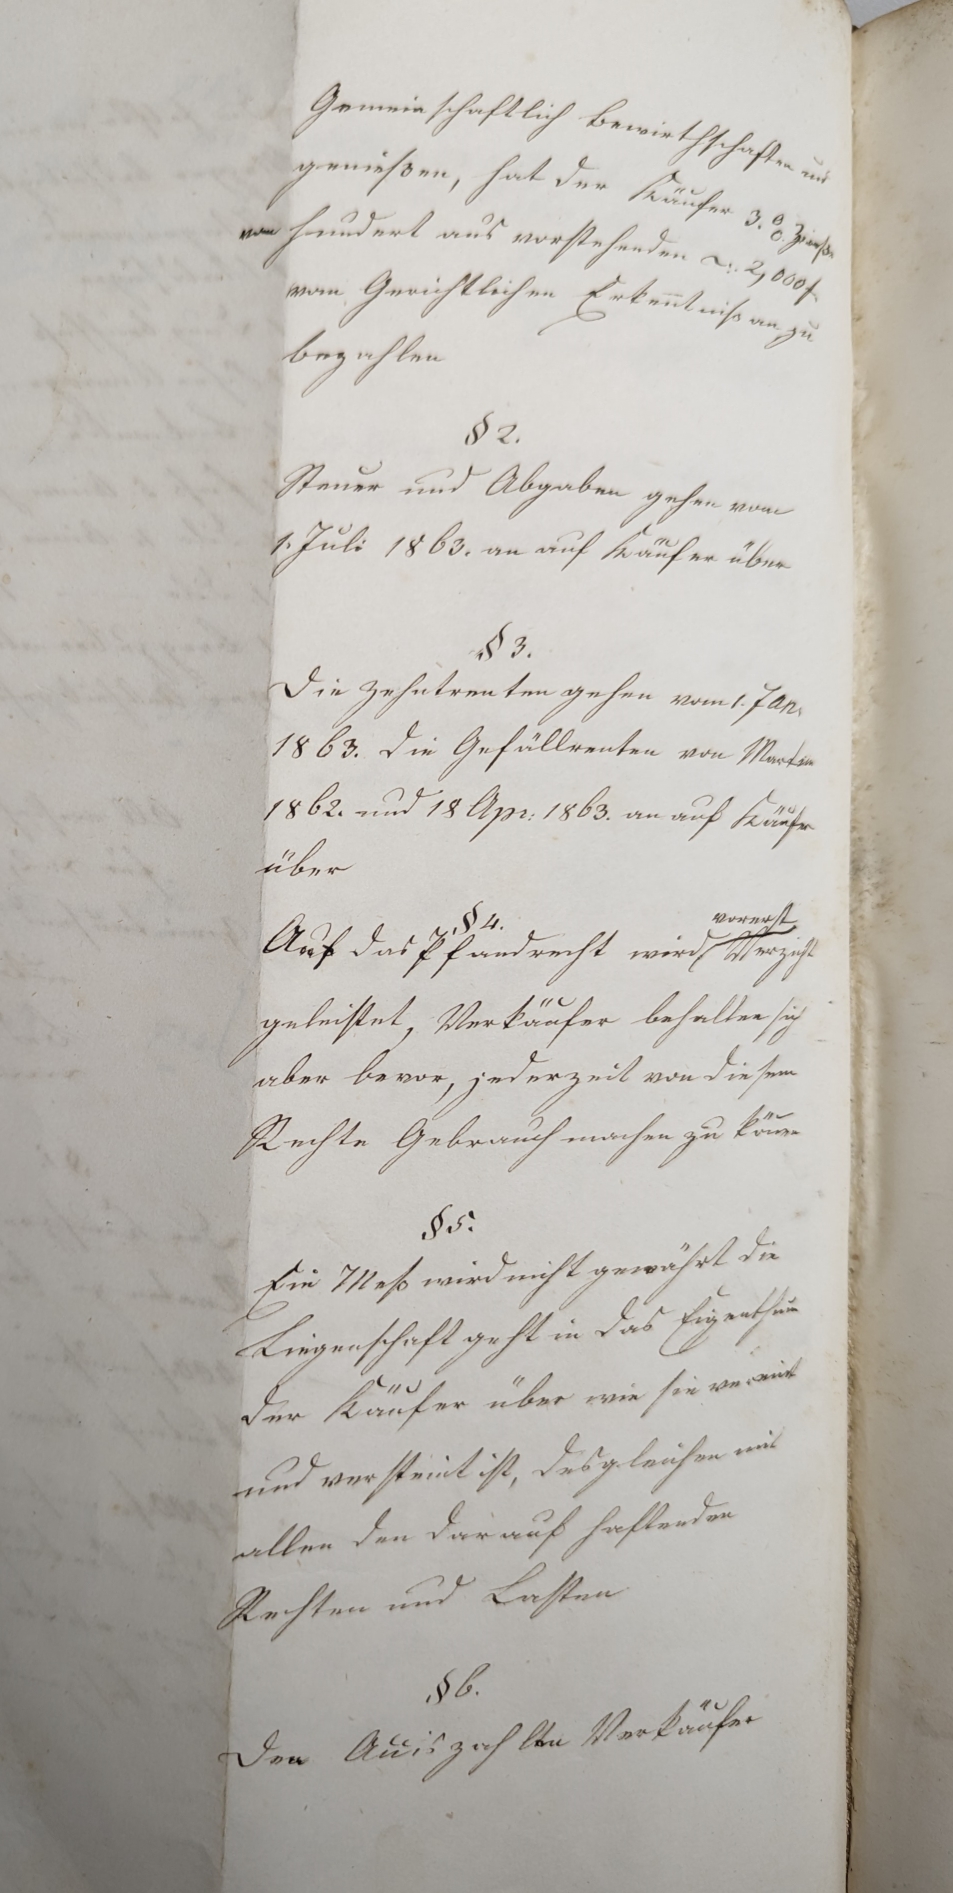 Gemeinschaftlich bewirthschaften und
genießen, hat der Käufer 3.% Zinsße
vom hundert aus vorstehenden 2,000 f
vom Gerichtlichen Erkenntniß an zu
bezahlen
§ 2.
Steuer und Abgaben gehen vom
1. Juli 1863. an auf Käufer über
§ 3.
Die Zehntrenten gehen vom 1. Jan.
1863. die Gefällrenten von Martin
1862. und 18 Apr: 1863. an auf Käufer
über
§ 4.
vorerst
Auf das Pfandrecht wird Verzicht
geleistet, Verkäufer behalten sich
aber bevor, jederzeit von diesem
Rechte Gebrauch machen zu könen
§ 5.
Ein Meß wird nicht gewährt die
Liegenschaft geht in das Eigenthum
der Käufer über wie sie vereint
und versteint ist, desgleichen mit
allen den darauf haftenden
Rechten und Lasten
§ 6.
Den Verkäufer